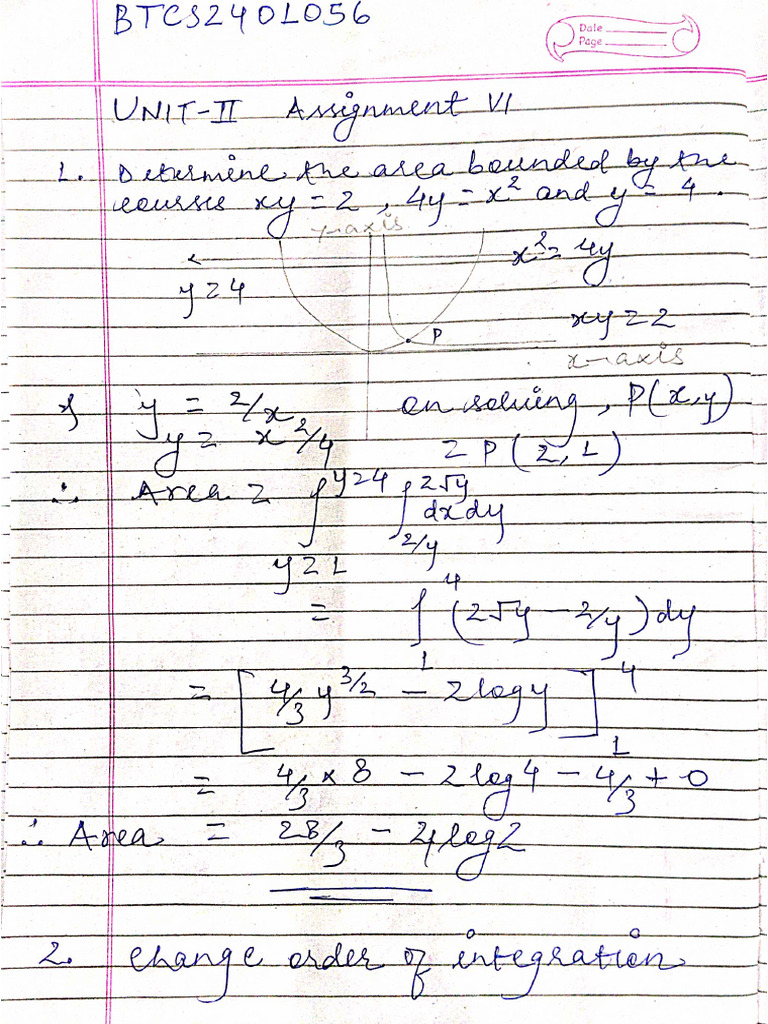 BTCS2401056
Date
Page
UNIT-II Assignment VI
1. Determine the area bounded by the
courses xy = 2, 4y = x² and y = 4.
y-axis
x² = 4y
y = 4
xy = 2
P
x-axis
y = 2/x on solving, P(x,y)
y = x²/4 = P(2,1)
∴ Area = ∫y=4 ∫2√y
dxdy
2/y
y=1
= ∫ 4 1 (2√y - 2/y) dy
= [4/3 y^3/2 - 2logy] 4 1
= 4/3 × 8 - 2log4 - 4/3 + 0
∴ Area = 28/3 - 4log2
2. change order of integration